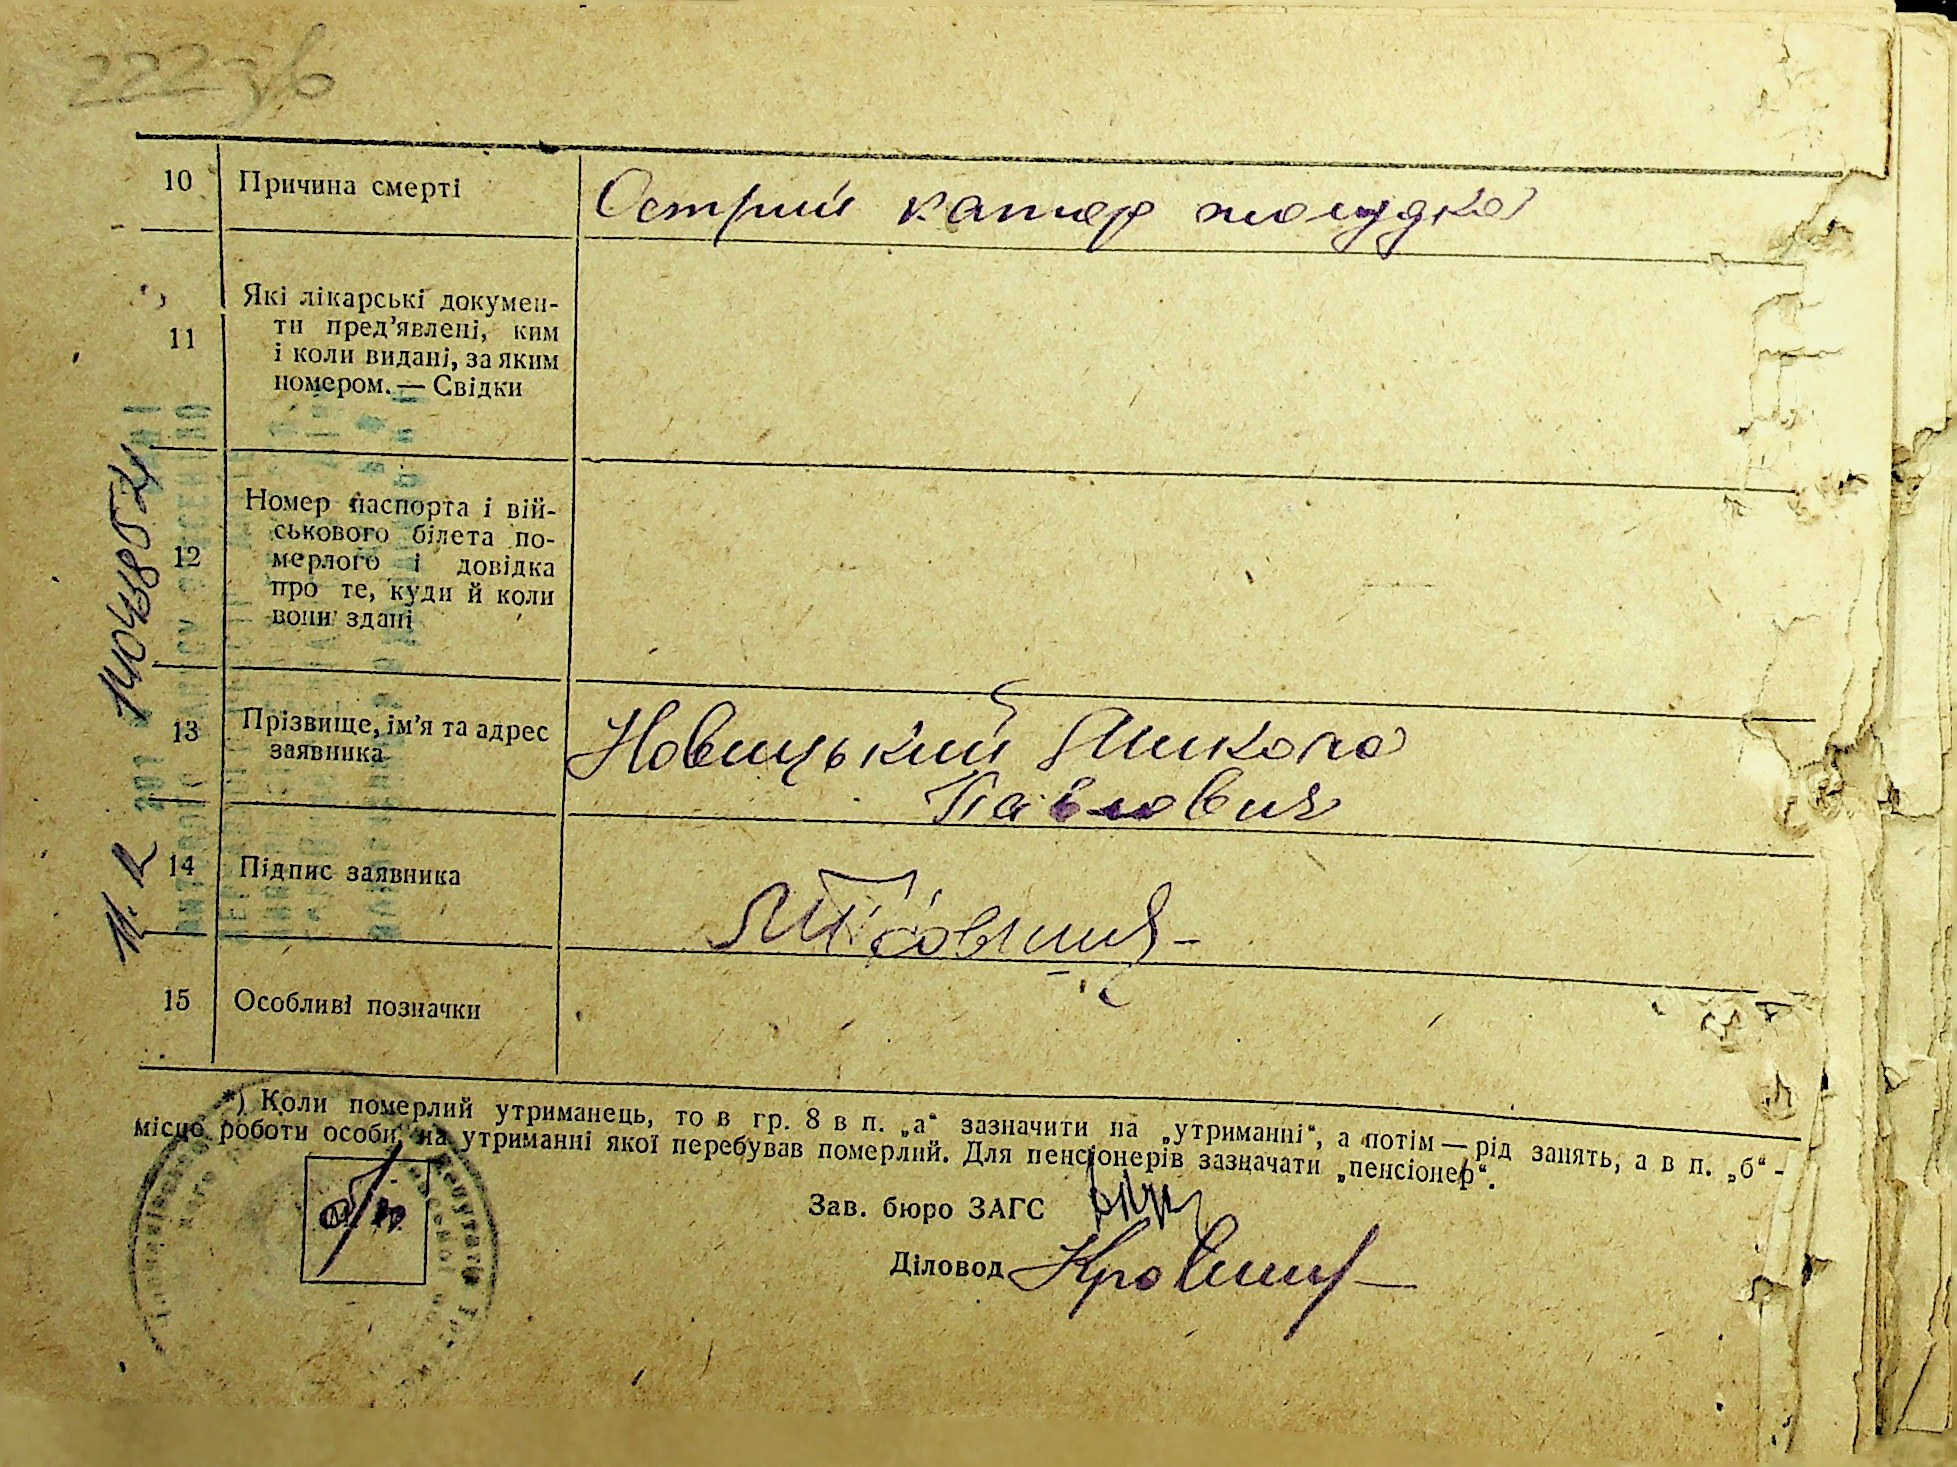 222 зв
10 Причина смерті Острий катар жолудка
11 Які лікарські докумен-
ти пред'явлені, ким
і коли видані, за яким
номером.— Свідки
12 Номер паспорта і вій-
ськового білета по-
мерлого і довідка
про те, куди й коли
вони здані
13 Прізвище, ім'я та адрес
заявника
Новицький Микола
Павлович
14 Підпис заявника
15 Особливі позначки
*) Коли померлий утриманець, то в гр. 8 в п. „а“ зазначити на „утриманні“, а потім — рід занять, а в п. „б“ -
місцо роботи особи, на утриманні якої перебував померлий. Для пенсіонерів зазначати „пенсіонер“.
Зав. бюро ЗАГС
Діловод